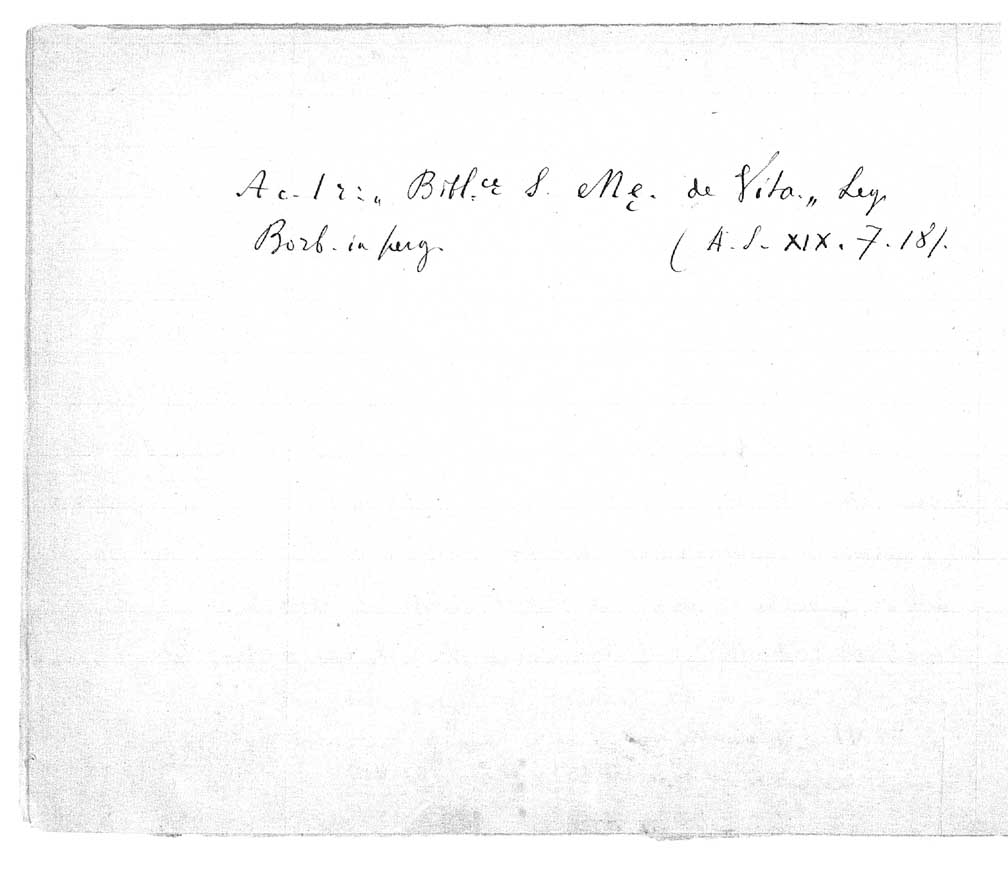 Ac. 1 r: „ Bibl.cæ S. Mę. de Vita „ Leg.
Borb. in perg. ( A. S. XIX. 7. 18).